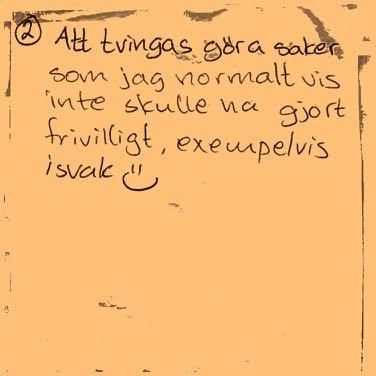 ② Att tvingas göra saker
som jag normalt vis
inte skulle ha gjort
frivilligt, exempelvis
isvak ü